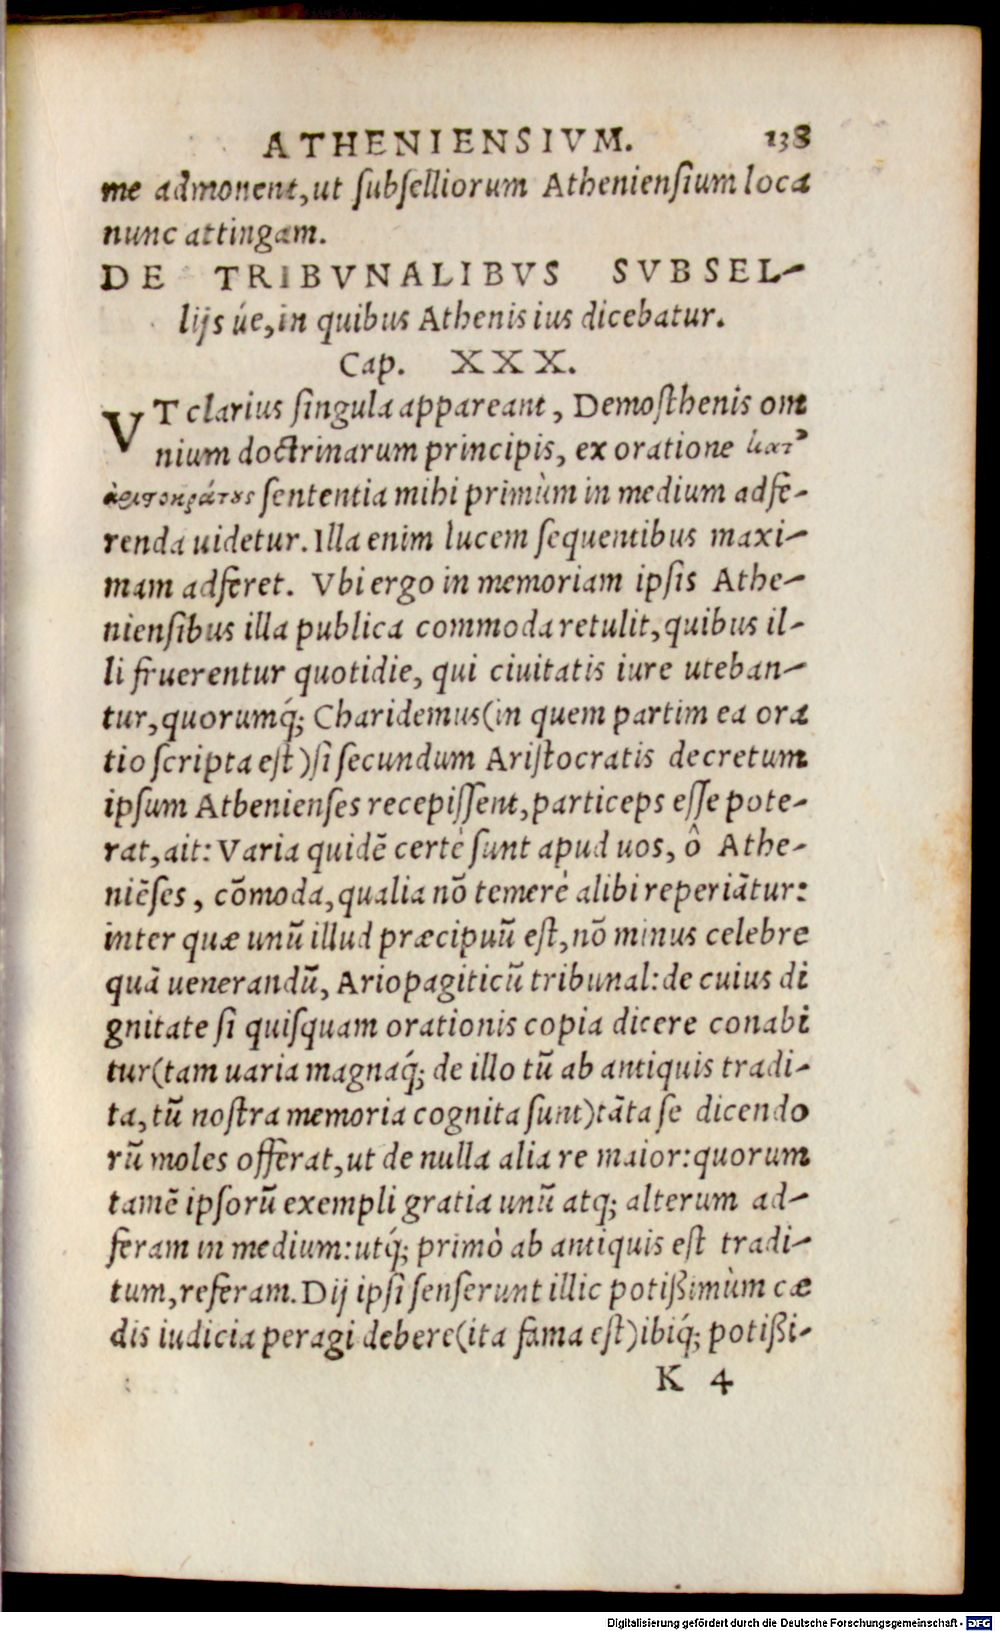 ATHENIENSIVM. 138
me admonent, ut subselliorum Atheniensium loca
nunc attingam.
DE TRIBVNALIBVS SVBSEL-
lijs úe, in quibus Athenis ius dicebatur.
Cap. XXX.
VT clarius singula appareant, Demosthenis om
nium doctrinarum principis, ex oratione κατ᾽
ἀριστοκράτους sententia mihi primùm in medium adfe-
renda uidetur. Illa enim lucem sequentibus maxi-
mam adferet. Vbi ergo in memoriam ipsis Athe-
niensibus illa publica commoda retulit, quibus il-
li fruerentur quotidie, qui ciuitatis iure uteban-
tur, quorumq́; Charidemus(in quem partim ea ora
tio scripta est)si secundum Aristocratis decretum
ipsum Athenienses recepissent, particeps esse pote-
rat, ait: Varia quidē certè sunt apud uos, ô Athe-
niēses, cōmoda, qualia nō temerè alibi reperiātur:
inter quæ unū illud præcipuū est, nō minus celebre
quā uenerandū, Ariopagiticū tribunal: de cuius di
gnitate si quisquam orationis copia dicere conabi
tur(tam uaria magnaq́; de illo tū ab antiquis tradi-
ta, tū nostra memoria cognita sunt)tāta se dicendo
rū moles offerat, ut de nulla alia re maior: quorum
tamē ipsorū exempli gratia unū atq; alterum ad-
feram in medium: utq́; primò ab antiquis est tradi-
tum, referam. Dij ipsi senserunt illic potißimùm cæ
dis iudicia peragi debere(ita fama est)ibiq́; potißi-
K 4
Digitalisierung gefördert durch die Deutsche Forschungsgemeinschaft - DFG